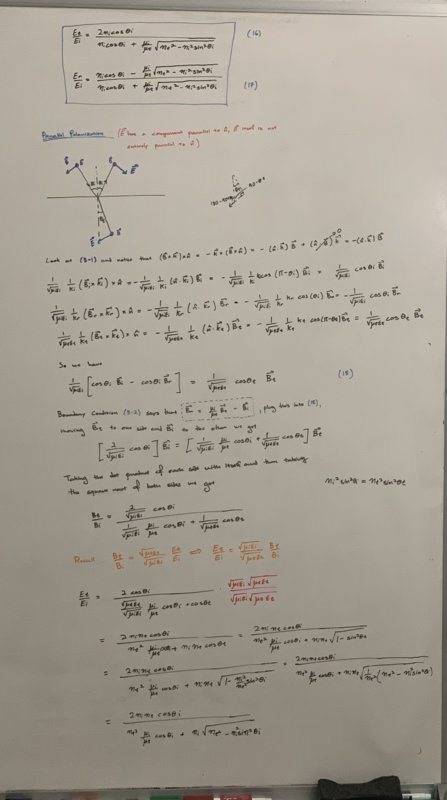 Et/Ei = 2ni cosθi / (ni cosθi + μi/μt √(nt² - ni² sin²θi)) (16)
Er/Ei = (ni cosθi - μi/μt √(nt² - ni² sin²θi)) / (ni cosθi + μi/μt √(nt² - ni² sin²θi)) (17)
Parallel Polarization (E⃗ has a component parallel to n̂, B⃗ itself is not
entirely parallel to n̂)
Look at (3-1) and notice that (B⃗×k⃗)×n̂ = -n̂×(B⃗×k⃗) = -(n̂·k⃗)B⃗ + (n̂·B⃗)k⃗ = -(n̂·k⃗)B⃗
1/√μiεi 1/ki (B⃗i×k⃗i)×n̂ = -1/√μiεi 1/ki (n̂·k⃗i)B⃗i = -1/√μiεi 1/ki ki cos(π-θi)B⃗i = 1/√μiεi cosθi B⃗i
1/√μiεi 1/kr (B⃗r×k⃗r)×n̂ = -1/√μiεi 1/kr (n̂·k⃗r)B⃗r = -1/√μiεi 1/kr kr cos(θi)B⃗r = -1/√μiεi cosθi B⃗r
1/√μtεt 1/kt (B⃗t×k⃗t)×n̂ = -1/√μtεt 1/kt (n̂·k⃗t)B⃗t = -1/√μtεt 1/kt kt cos(π-θt)B⃗t = 1/√μtεt cosθt B⃗t
So we have
1/√μiεi [cosθi B⃗i - cosθi B⃗r] = 1/√μtεt cosθt B⃗t (18)
Boundary Condition (3-2) says that B⃗r = μi/μt B⃗t - B⃗i, plug this into (18),
moving B⃗t to one side and B⃗i to the other we get
[2/√μiεi cosθi] B⃗i = [1/√μiεi μi/μt cosθi + 1/√μtεt cosθt] B⃗t
Taking the dot product of each side with itself and then taking
the square root of both sides we get
ni² sin²θi = nt² sin²θt
Bt/Bi = (2/√μiεi cosθi) / (1/√μiεi μi/μt cosθi + 1/√μtεt cosθt)
Recall Bt/Bi = √μtεt/√μiεi Et/Ei ⟺ Et/Ei = √μiεi/√μtεt Bt/Bi
Et/Ei = 2cosθi / (√μtεt/√μiεi μi/μt cosθi + cosθt) · √μiεi √μtεt / √μiεi √μtεt
= 2ni nt cosθi / (nt² μi/μt cosθi + ni nt cosθt) = 2ni nt cosθi / (nt² μi/μt cosθi + ni nt √(1-sin²θt))
= 2ni nt cosθi / (nt² μi/μt cosθi + ni nt √(1 - ni²/nt² sin²θi)) = 2ni nt cosθi / (nt² μi/μt cosθi + ni nt √(1/nt² (nt² - ni² sin²θi)))
= 2ni nt cosθi / (nt² μi/μt cosθi + ni √(nt² - ni² sin²θi))